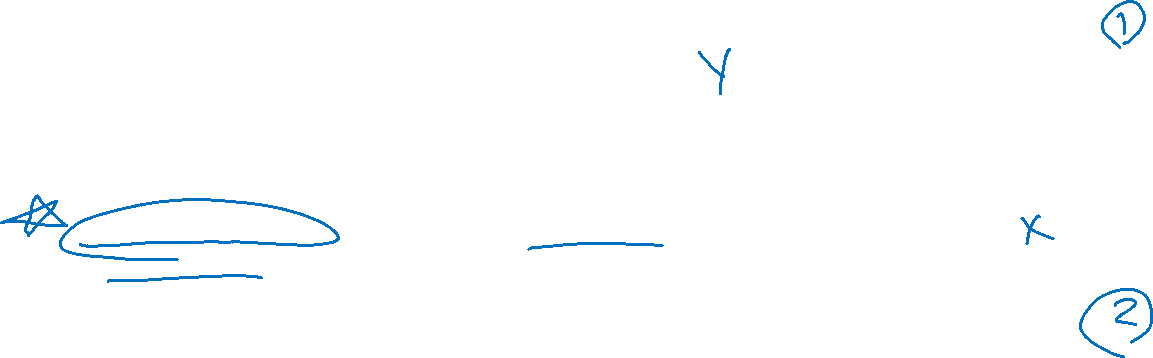 1
Y
X
2